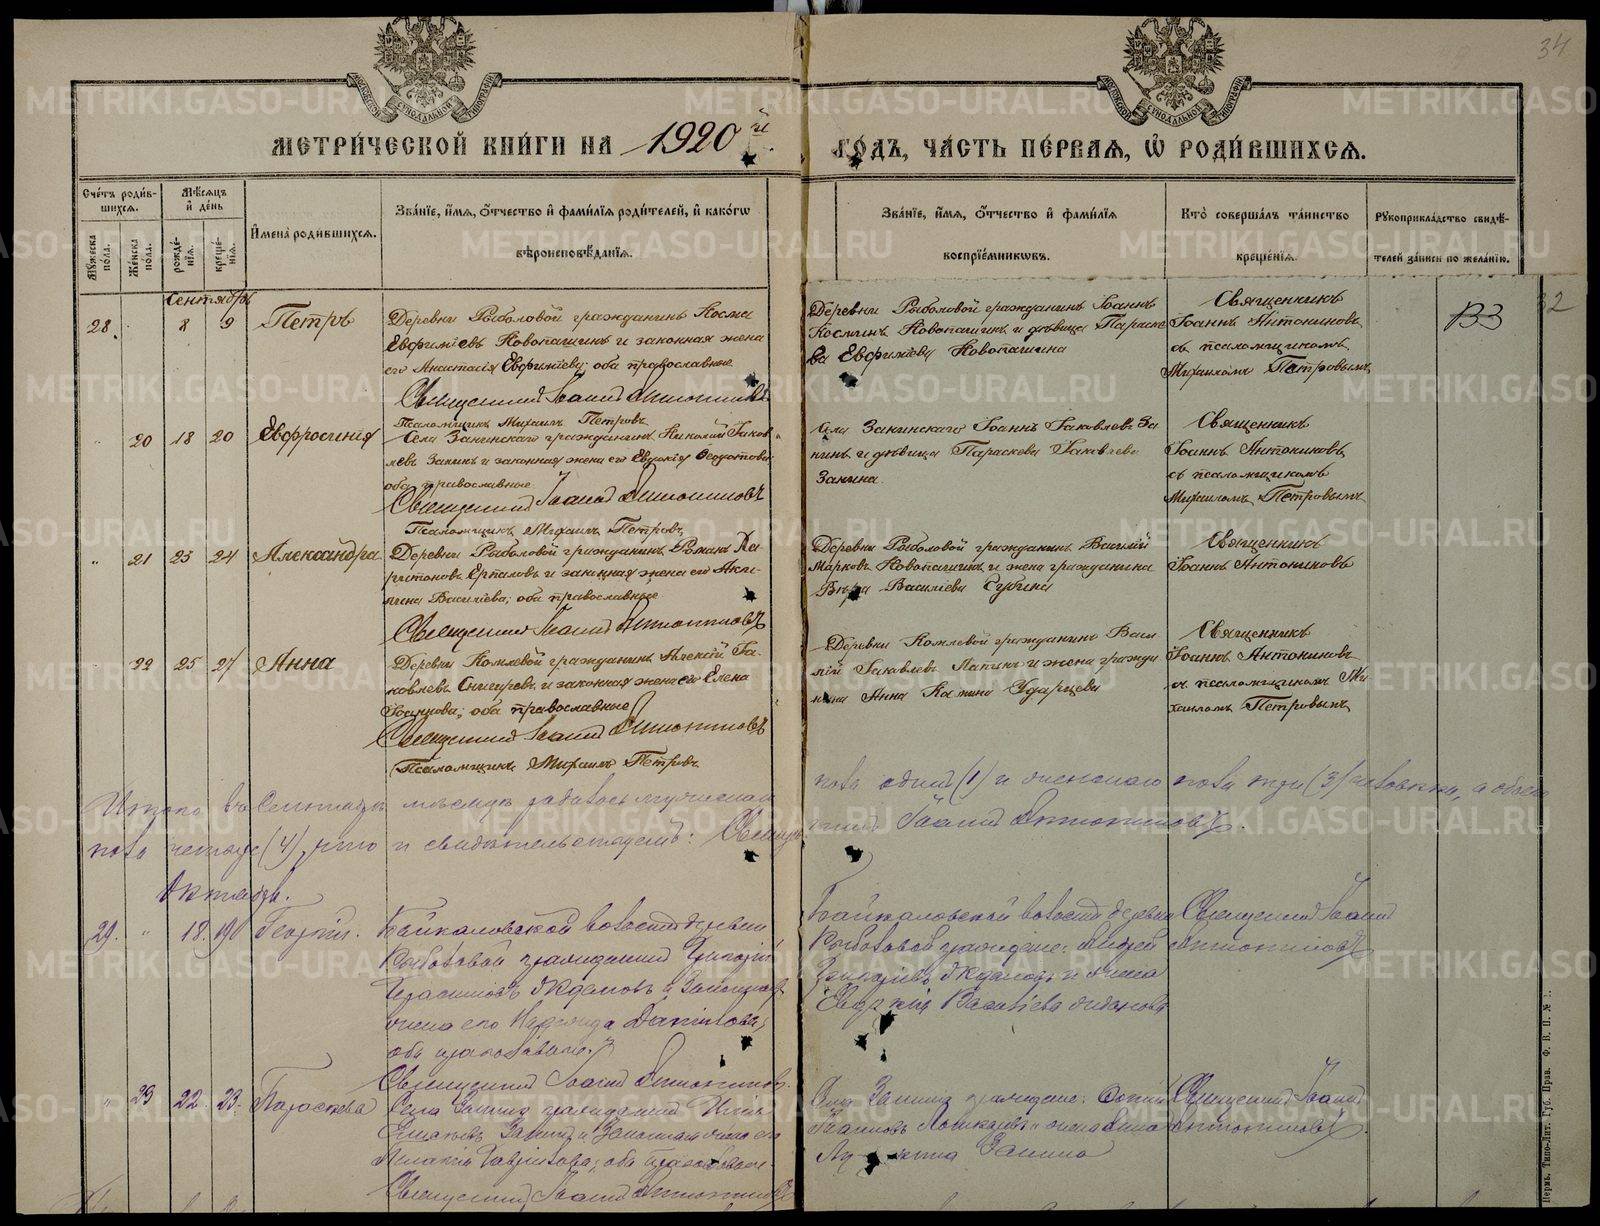 34
МЕТРИ́ЧЕСКОЙ КНИ́ГИ НА 1920й ГОДЪ, ЧА́СТЬ ПЕ́РВАЯ, Ѡ РОДИ́ВШИХСЯ.
Сче́тъ роди́вшихся.
Мѣ́сяцъ и́ де́нь
И҆мена̀ роди́вшихся.
Зва́нїе, и҆́мя, ѻ҆́тчество и҆ фами́лїя роди́телей, и҆ како́гѡ
вѣроисповѣ́данїя.
Зва́нїе, и҆́мя, ѻ҆́тчество и҆ фами́лїя
воспрїе́мникѡвъ.
Кто̀ соверша́лъ та́инство
креще́нїя.
Рꙋкоприкла́дство свидѣ́-
телей за́писи по жела́нїю.
Мꙋ́жеска по́ла.
Же́нска по́ла.
рожде́нїя.
креще́нїя.
Сентябрь
28. 8 9 Петръ
Деревни Рыболовой гражданинъ Косма
Евфиміевъ Новопашинъ и законная жена
его Анастасія Евфиміева; оба православные
Священникъ Іоаннъ Антониновъ
Псаломщикъ Михаилъ Петровъ
Деревни Рыболовой гражданинъ Іоаннъ
Косминъ Новопашинъ и дѣвица Параске
ва Евфиміева Новопашина
Священникъ
Іоаннъ Антониновъ
съ псаломщикомъ
Михаиломъ Петровымъ
32
20 18 20 Евфросинія
Села Занинскаго гражданинъ Николай Іаков
левъ Занинъ и законная жена его Евдокія Ѳеодотова
оба православные
Священникъ Іоаннъ Антониновъ
Псаломщикъ Михаилъ Петровъ
Села Занинскаго Іоаннъ Іаковлевъ За
нинъ и дѣвица Параскева Іаковлева
Занина
Священникъ
Іоаннъ Антониновъ
съ псаломщикомъ
Михаиломъ Петровымъ
21 23 24 Александра
Деревни Рыболовой гражданинъ Романъ Ха
ритоновъ и законная жена его Аки
лина Василіева; оба православные
Священникъ Іоаннъ Антониновъ
Деревни Рыболовой гражданинъ Василій
Марковъ Новопашинъ и жена гражданина
Вѣра Василіева
Священникъ
Іоаннъ Антониновъ
22 25 27 Анна
Деревни Комлевой гражданинъ Алексій Іа
ковлевъ Снигиревъ и законная жена его Елена
оба православные
Священникъ Іоаннъ Антониновъ
Псаломщикъ Михаилъ Петровъ
Деревни Комлевой гражданинъ Васи
лій Іаковлевъ Лапинъ и жена гражда
нина Анна Ударцева
Священникъ
Іоаннъ Антониновъ
съ псаломщикомъ Ми
хаиломъ Петровымъ
Итого въ Сентябрѣ мѣсяцѣ родилось мужескаго
пола одинъ (1) и женскаго пола три (3) человѣка, а обоего
пола четыре (4), что и свидѣтельствуемъ: Священ
никъ Іоаннъ Антониновъ.
Октябрь.
29. " 18. 19 Георгій.
Байкаловской волости деревни
Рыболовой гражданинъ Григорій
Герасимовъ Ждановъ и законная
жена его Надежда Данилова;
оба православные.
Священникъ Іоаннъ Антониновъ.
Байкаловской волости деревни
Рыболовой граждане: Андрей
Григорьевъ Ждановъ и жена
Евдокія Васильева Жданова
Священникъ Іоаннъ
Антониновъ
" 23 22. 23. Параскева
Села Занина гражданинъ
Занинъ и законная жена его
Гаврилова; оба православные.
Священникъ Іоаннъ Антониновъ
Села Занина граждане:
Занина
Священникъ Іоаннъ
Антониновъ
Пермь. Типо-Лит. Губ. Прав. Ф. В. П. № 1.
METRIKI.GASO-URAL.RU